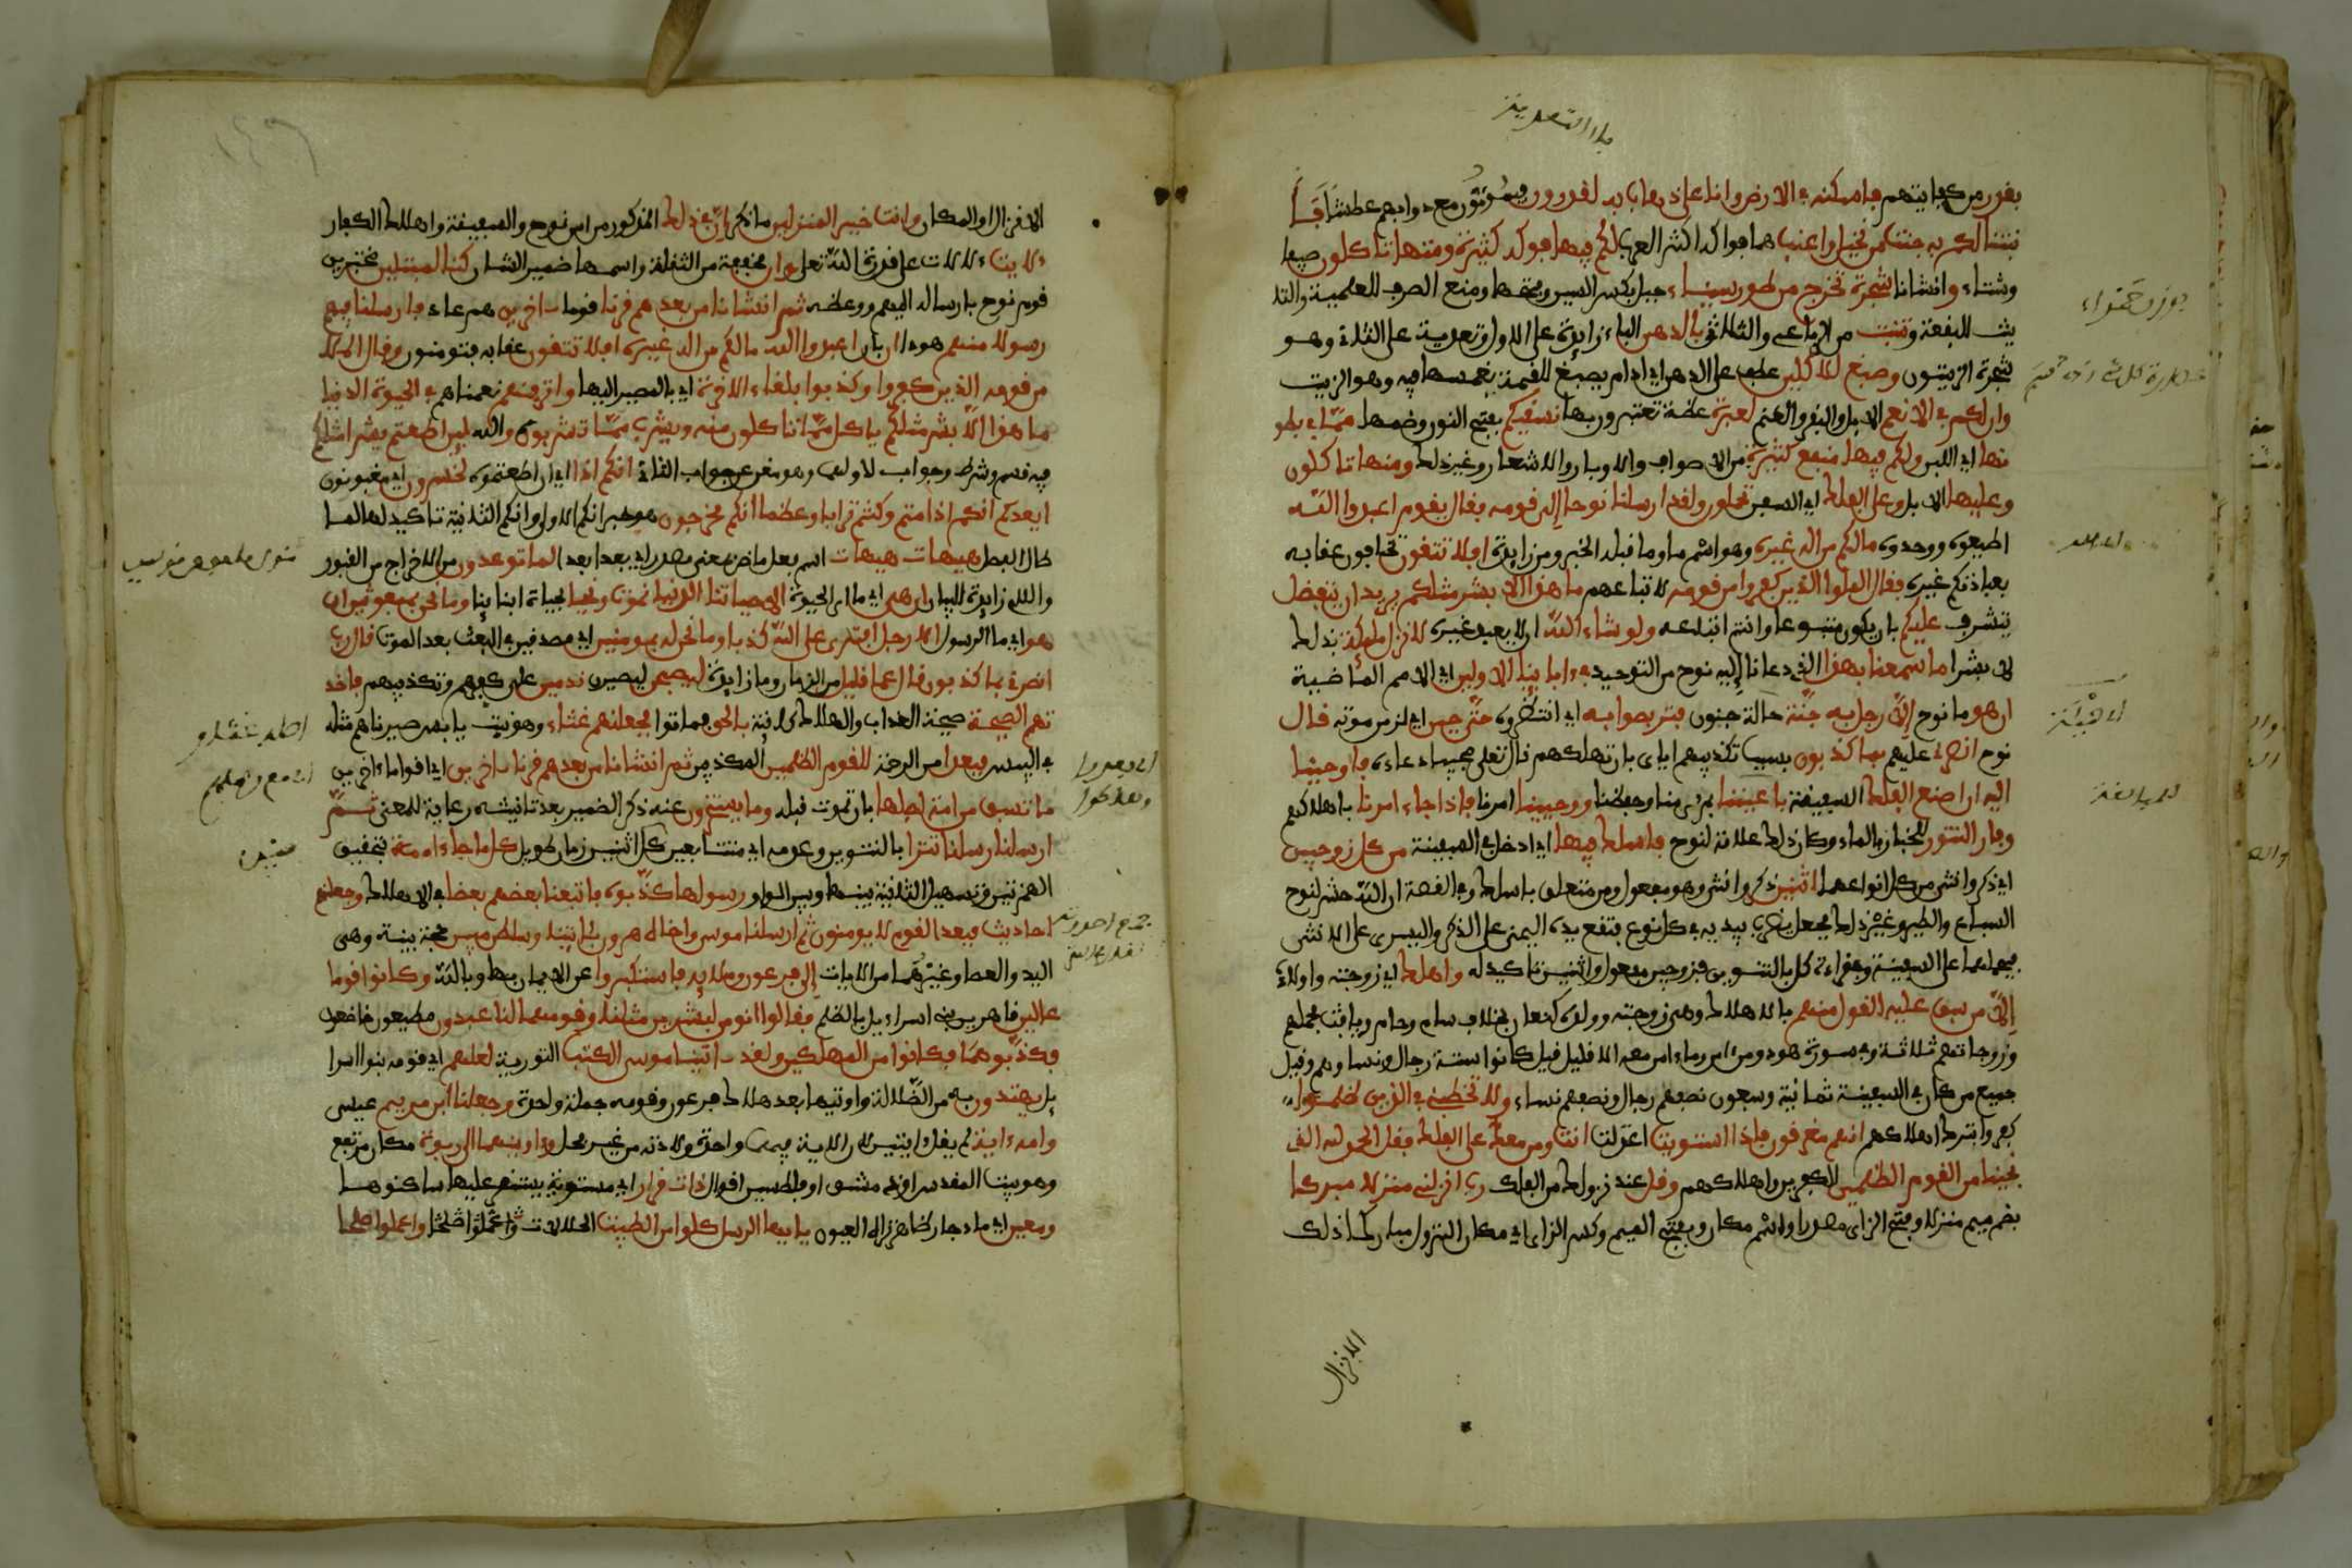 بقدر من كفايتهم فاسكنه في الارض وانا على ذهاب به لقدرون فيموتون مع دوابهم عطشا فا
نشانا لكم به جنت من نخيل واعنب هما فواكه اكثر العرب لكم فيها فوكه كثيرة ومنها تاكلون صيفا
وشتاء وانشانا شجرة تخرج من طور سيناء جبل بكسر السين وفتحها ومنع الصرف للعلمية والتا
نيث للبقعة وتنبت من الرباعي والثلاثي بالدهن الباء زايدة على الاول وتعدية على الثلاثي وهو
شجرة الزيتون وصبغ للاكلين عطف على الدهن اي ادام يصبغ اللقمة بغمسها فيه وهو الزيت
وان لكم في الانعم الابل والبقر والغنم لعبرة عظة تعتبرون بها نسقيكم بفتح النون وضمها مما في بطو
نها اي اللبن ولكم فيها منفع كثيرة من الاصواف والاوبار والاشعار وغير ذلك ومنها تاكلون
وعليها الابل وعلى الفلك اي السفن تحملون ولقد ارسلنا نوحا الى قومه فقال يقوم اعبدوا الله
اطيعوه ووحدوه ما لكم من اله غيره وهو اسم ما وما قبله الخبر ومن زايدة افلا تتقون تخافون عقابه
بعبادتكم غيره فقال الملوا الذين كفروا من قومه لاتباعهم ما هذا الا بشر مثلكم يريد ان يتفضل
يتشرف عليكم بان يكون متبوعا وانتم اتباعه ولو شاء الله ان لا يعبد غيره لانزل ملئكة بذلك
لا بشرا ما سمعنا بهذا الذي دعانا إليه نوح من التوحيد في ابائنا الاولين اي الامم الماضية
ان هو ما نوح إلا رجل به جنة حالة جنون فتربصوا به اي انتظروه حتى حين اي لزمن موته قال
نوح انصرني عليهم بما كذبون بسبب تكذيبهم اياي بان تهلكهم قال تعلى مجيبا دعاءه فاوحينا
اليه ان اصنع الفلك السفينة باعيننا بمرءى منا وحفظنا ووحينا امرنا فاذا جاء امرنا باهلاكهم
وفار التنور للخباز بالماء وكان ذلك علامة لنوح فاسلك فيها اي ادخل في السفينة من كل زوجين
اي ذكر وانثى من كل انواعهما اثنين ذكر وانثى وهو مفعول ومن متعلق باسلك وفي القصة ان الله حشر لنوح
السباع والطير وغير ذلك فجعل يضرب بيديه في كل نوع فتقع يده اليمنى على الذكر واليسرى على الانثى
فيحملهما على السفينة وفي قراءة كل بالتنوين فزوجين مفعول واثنين تاكيد له واهلك اي زوجته واولاده
إلا من سبق عليه القول منهم بالاهلاك وهي زوجته وولده كنعان بخلاف سام وحام ويافث فحملهم
وزوجاتهم ثلاثة وفي سورة هود ومن امن وما امن معه الا قليل قيل كانوا ستة رجال ونساؤهم وقيل
جميع من كان في السفينة ثمانية وسبعون نصفهم رجال ونصفهم نساء ولا تخطبني في الذين ظلموا
كفروا بترك اهلاكهم انهم مغرقون فاذا استويت اعتدلت انت ومن معك على الفلك فقل الحمد لله الذي
نجينا من القوم الظلمين الكفرين واهلاكهم وقل عند نزولك من الفلك رب انزلني منزلا مبركا
بضم ميم منزلا وفتح الزاي مصدر او اسم مكان وبفتح الميم وكسر الزاي اي مكان النزول مباركا ذلك
الانزال
الانزال او المكان وانت خير المنزلين ما ذكر ان في ذلك المذكور من امر نوح والسفينة واهلاك الكفار
لايت دلالات على قدرة الله تعلى وان مخففة من الثقيلة واسمها ضمير الشان كنا لمبتلين مختبرين
قوم نوح بارساله اليهم ووعظه ثم انشانا من بعدهم قرنا قوما اخرين هم عاد فارسلنا فيهم
رسولا منهم هودا ان بان اعبدوا الله ما لكم من اله غيره افلا تتقون عقابه فتومنون وقال الملا
من قومه الذين كفروا وكذبوا بلقاء الاخرة اي بالمصير اليها واترفنهم نعمناهم في الحيوة الدنيا
ما هذا إلا بشر مثلكم ياكل مما تاكلون منه ويشرب مما تشربون والله لين اطعتم بشرا مثلكم
فيه قسم وشرط وجواب لاولهما وهو مغن عن جواب الثاني انكم اذا اي ان اطعتموه لخسرون اي مغبونون
ايعدكم انكم اذا متم وكنتم ترابا وعظما انكم مخرجون هو خبر انكم الاولى وانكم الثانية تاكيد لها لما
طال الفصل هيهات هيهات اسم فعل ماض بمعنى مصدر اي بعد بعد لما توعدون من الاخراج من القبور
واللام زايدة للبيان ان هي اي ما الحيوة الا حياتنا الدنيا نموت ونحيا بحياة ابنائنا وما نحن بمبعوثين ان
هو اي ما الرسول الا رجل افترى على الله كذبا وما نحن له بمومنين اي مصدقين في البعث بعد الموت قال رب
انصرني بما كذبون قال عما قليل من الزمان وما زايدة ليصبحن ليصيرن ندمين على كفرهم وتكذيبهم فاخذ
تهم الصيحة صيحة العذاب والهلاك كائنة بالحق فماتوا فجعلنهم غثاء وهو نبت يابس صيرناهم مثله
في اليبس فبعدا من الرحمة للقوم الظلمين المكذبين ثم انشانا من بعدهم قرنا اخرين اي اقواما اخرين
ما تسبق من امة اجلها بان تموت قبله وما يستخرون عنه ذكر الضمير بعد تانيثه رعاية للمعنى ثم
ارسلنا رسلنا تترا بالتنوين وعدمه اي متتابعين بين كل اثنين زمان طويل كل ما جاء امة بتحقيق
الهمزتين وتسهيل الثانية بينها وبين الواو رسولها كذبوه فاتبعنا بعضهم بعضا في الاهلاك وجعلنهم
احاديث فبعدا لقوم لا يومنون ثم ارسلنا موسى واخاه هرون بايتنا وسلطن مبين حجة بينة وهي
اليد والعصا وغيرهما من الايات إلى فرعون وملايه فاستكبروا عن الايمان بها وبالله وكانوا قوما
عالين قاهرين بني اسراءيل بالظلم فقالوا انومن لبشرين مثلنا وقومهما لنا عبدون مطيعون خاضعون
فكذبوهما فكانوا من المهلكين ولقد اتينا موسى الكتب التورية لعلهم اي قومه بنوا اسرا
يل يهتدون به من الضلالة واوتيها بعد هلاك فرعون وقومه جملة واحدة وجعلنا ابن مريم عيسى
وامه اية لم يقل ايتين لان الاية فيهما واحدة ولادته من غير فحل واوينهما الى ربوة مكان مرتفع
وهو بيت المقدس او دمشق او فلسطين اقوال ذات قرار اي مستوية يستقر عليها ساكنوها
ومعين اي ماء جار ظاهر تراه العيون يايها الرسل كلوا من الطيبت الحلالات واعملوا صلحا